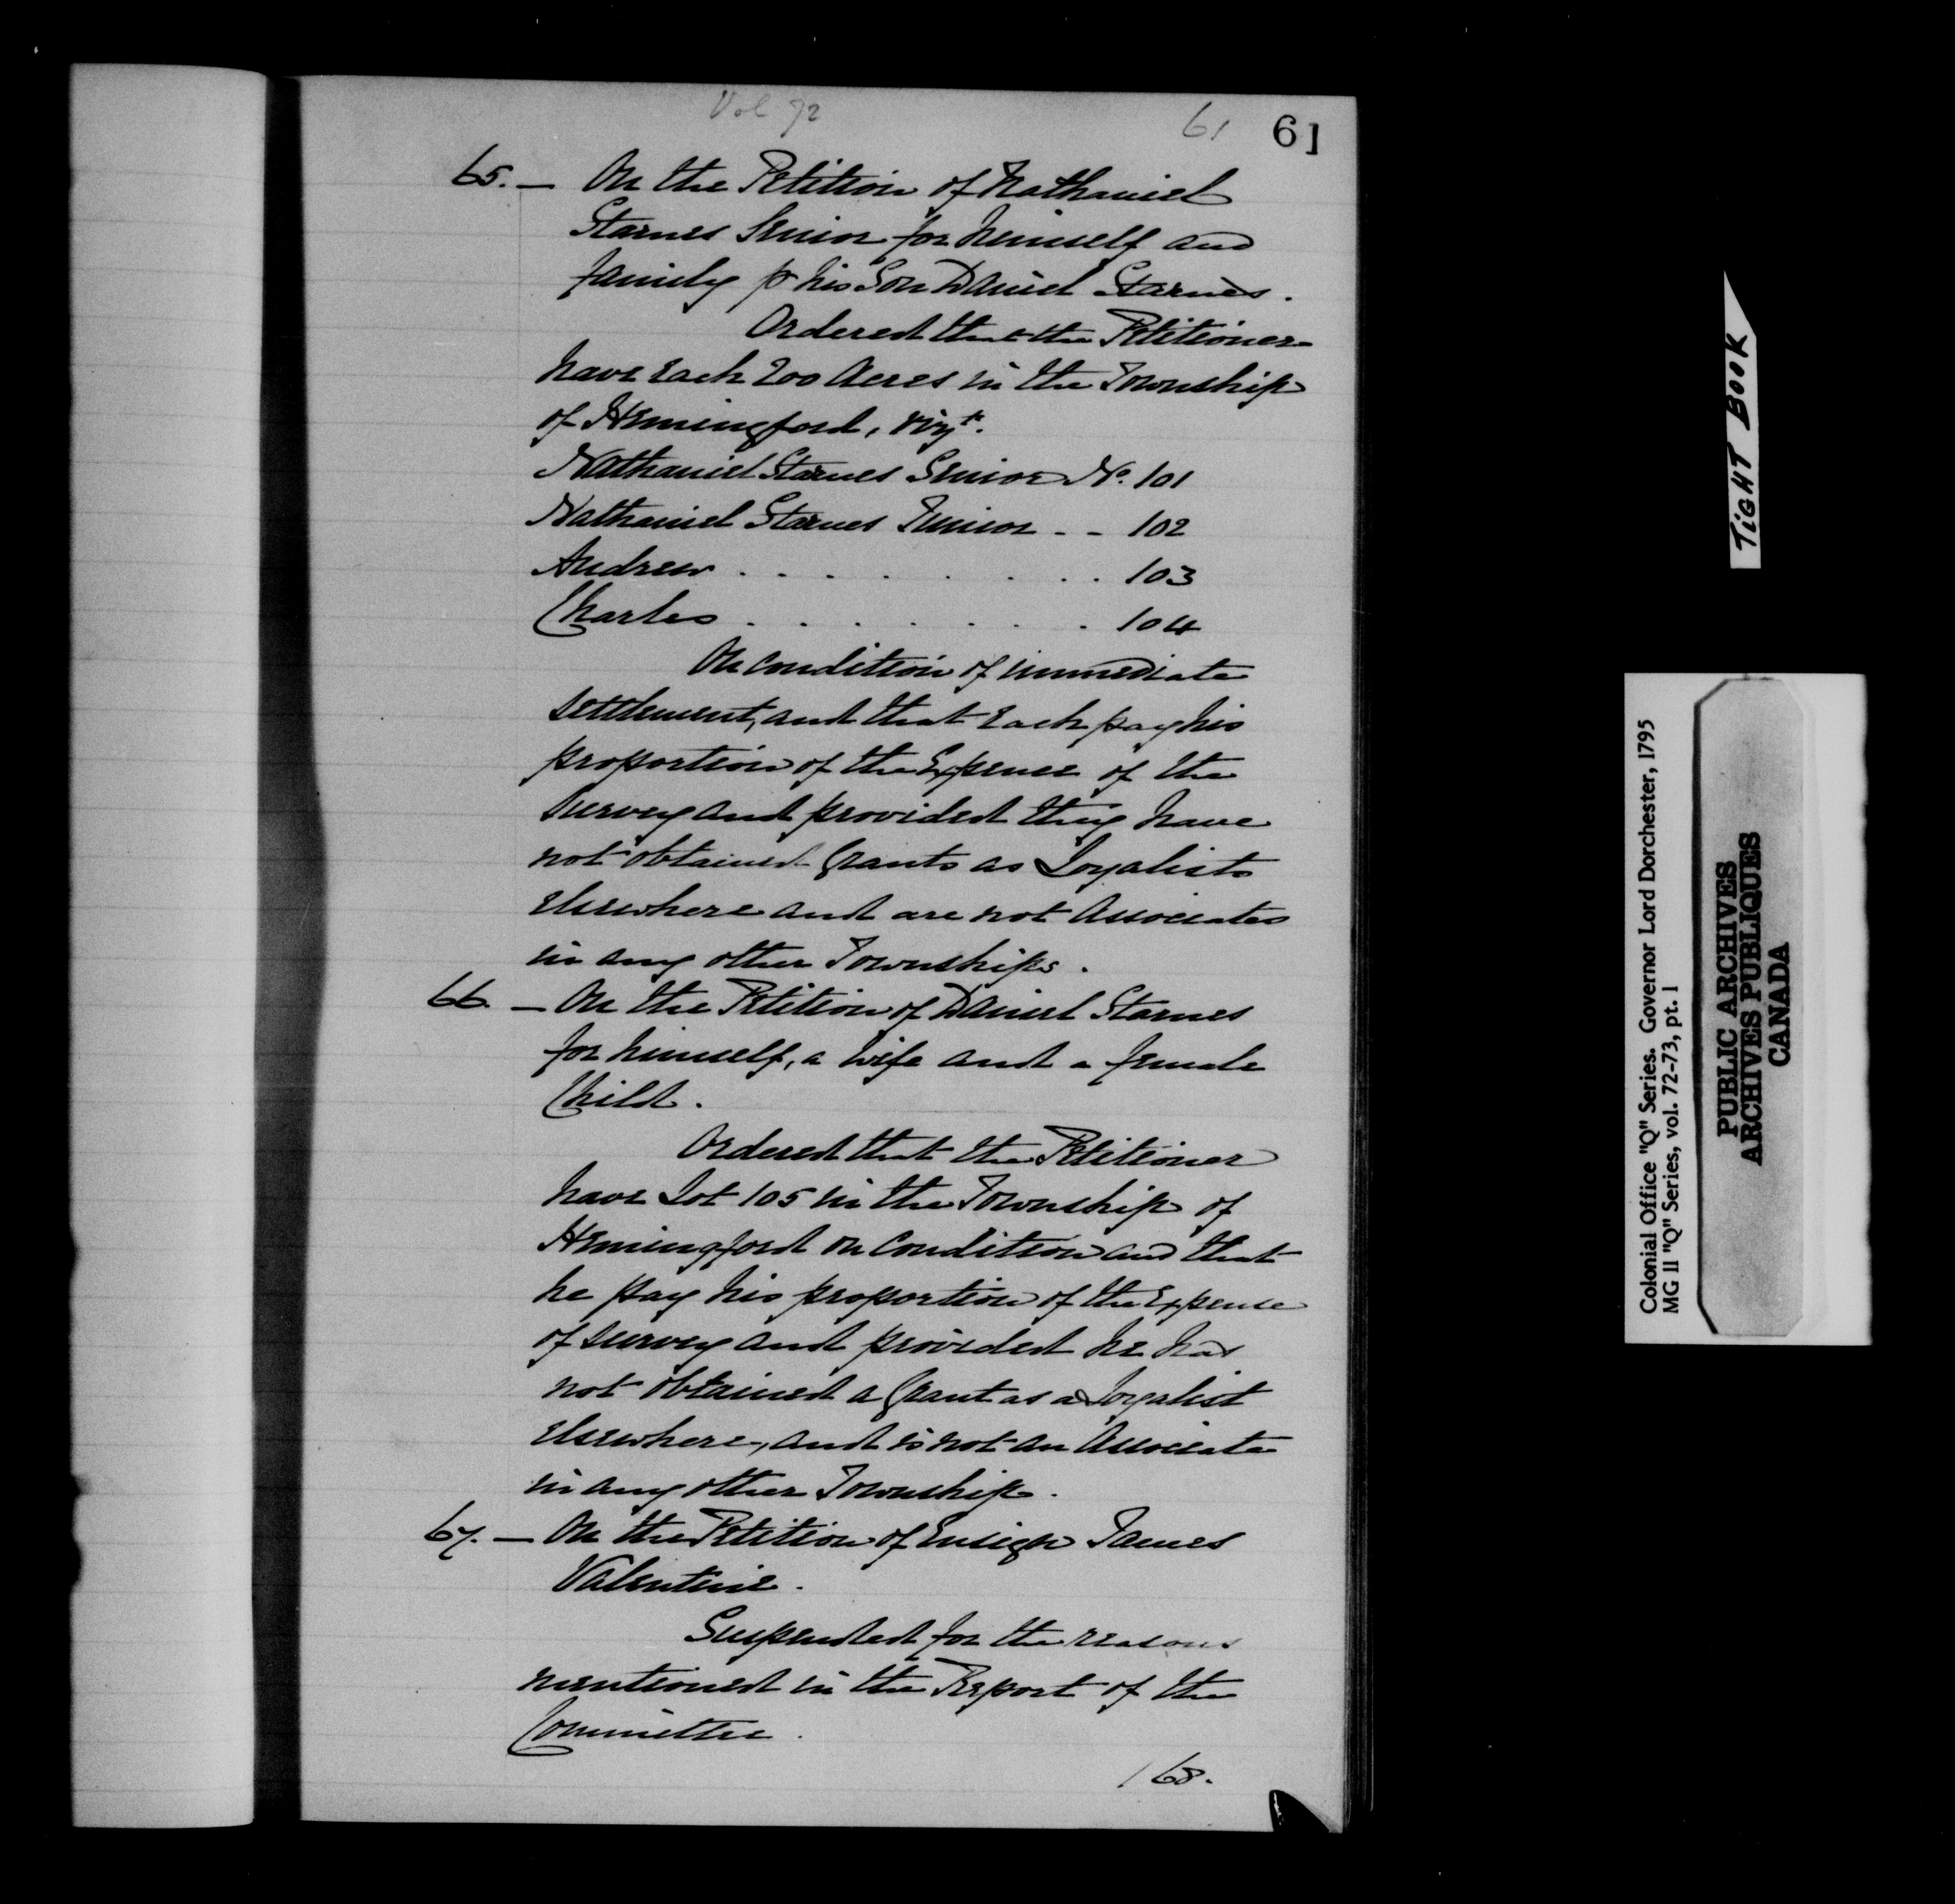 Vol 72
61 61
65. — On the Petition of Nathaniel
Starnes Senior for himself and
family pr his Son Daniel Starnes.
Ordered that the Petitioners
have each 200 Acres in the Township
of Hemingford, vizt.
Nathaniel Starnes Senior No. 101
Nathaniel Starnes Junior - - 102
Andrew . . . . . . . . . 103
Charles . . . . . . . . 104
On condition of immediate
settlement, and that each pay his
proportion of the Expence of the
Survey and provided they have
not obtained Grants as Loyalists
elsewhere and are not Associates
in any other Townships.
66. — On the Petition of Daniel Starnes
for himself, a wife and a female
Child.
Ordered that the Petitioner
have Lot 105 in the Township of
Hemingford on condition and that
he pay his proportion of the Expence
of survey and provided he has
not obtained a Grant as a Loyalist
elsewhere, and is not an Associate
in any other Township.
67. — On the Petition of Ensign James
Valentine.
Suspended for the reasons
mentioned in the Report of the
Committee.
/ 68.
TIGHT BOOK
Colonial Office "Q" Series. Governor Lord Dorchester, 1795
MG 11 "Q" Series, vol. 72-73, pt. 1
PUBLIC ARCHIVES
ARCHIVES PUBLIQUES
CANADA